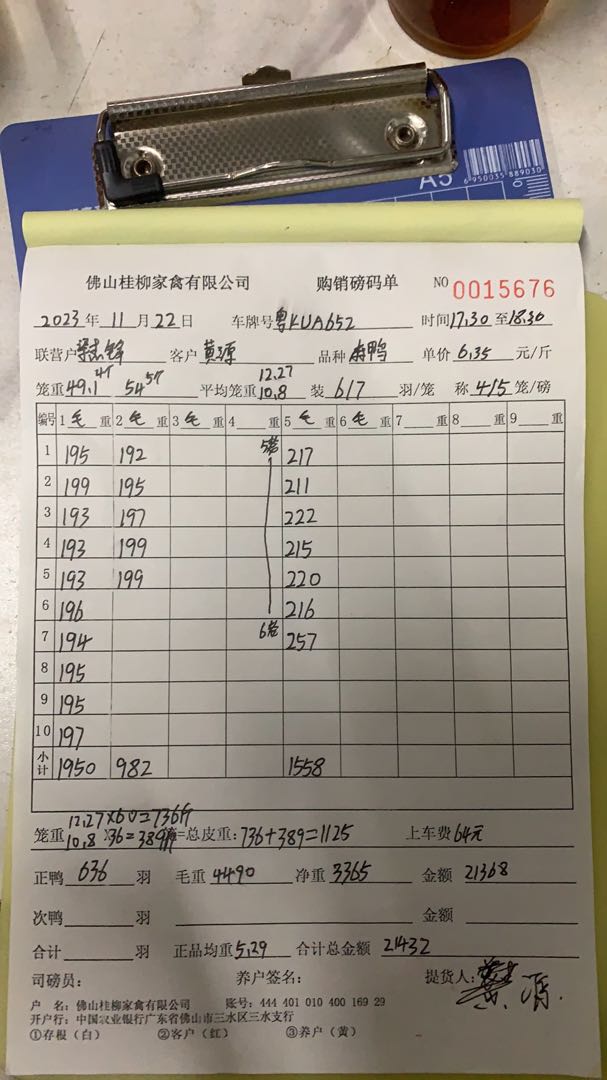 A5
6 950035 889030
佛山桂柳家禽有限公司 购销磅码单 NO 0015676
2023年 11月 22日 车牌号 粤KUA652 时间17.30至18.30
联营户 客户 黄源 品种 鸭 单价 6.35 元/斤
笼重 49.1 4个 54 5个 平均笼重 12.27 10.8 装 6/7 羽/笼 称 4/5 笼/磅
编号 1 毛 重 2 毛 重 3 毛 重 4 重 5 毛 重 6 毛 重 7 重 8 重 9 重
1 195 192 5笼 217
2 199 195 211
3 193 197 222
4 193 199 215
5 193 199 220
6 196 216
7 194 6笼 257
8 195
9 195
10 197
小计 1950 982 1558
12.27×60=736斤
笼重 10.8×36=389斤 =总皮重:736+389=1125 上车费 64元
正鸭 636 羽 毛重 4490 净重 3365 金额 21368
次鸭 羽 金额
合计 羽 正品均重 5.29 合计总金额 21432
司磅员: 养户签名: 提货人: 黄源.
户 名:佛山桂柳家禽有限公司 账号:444 401 010 400 169 29
开户行:中国农业银行广东省佛山市三水区三水支行
①存根(白) ②客户(红) ③养户(黄)